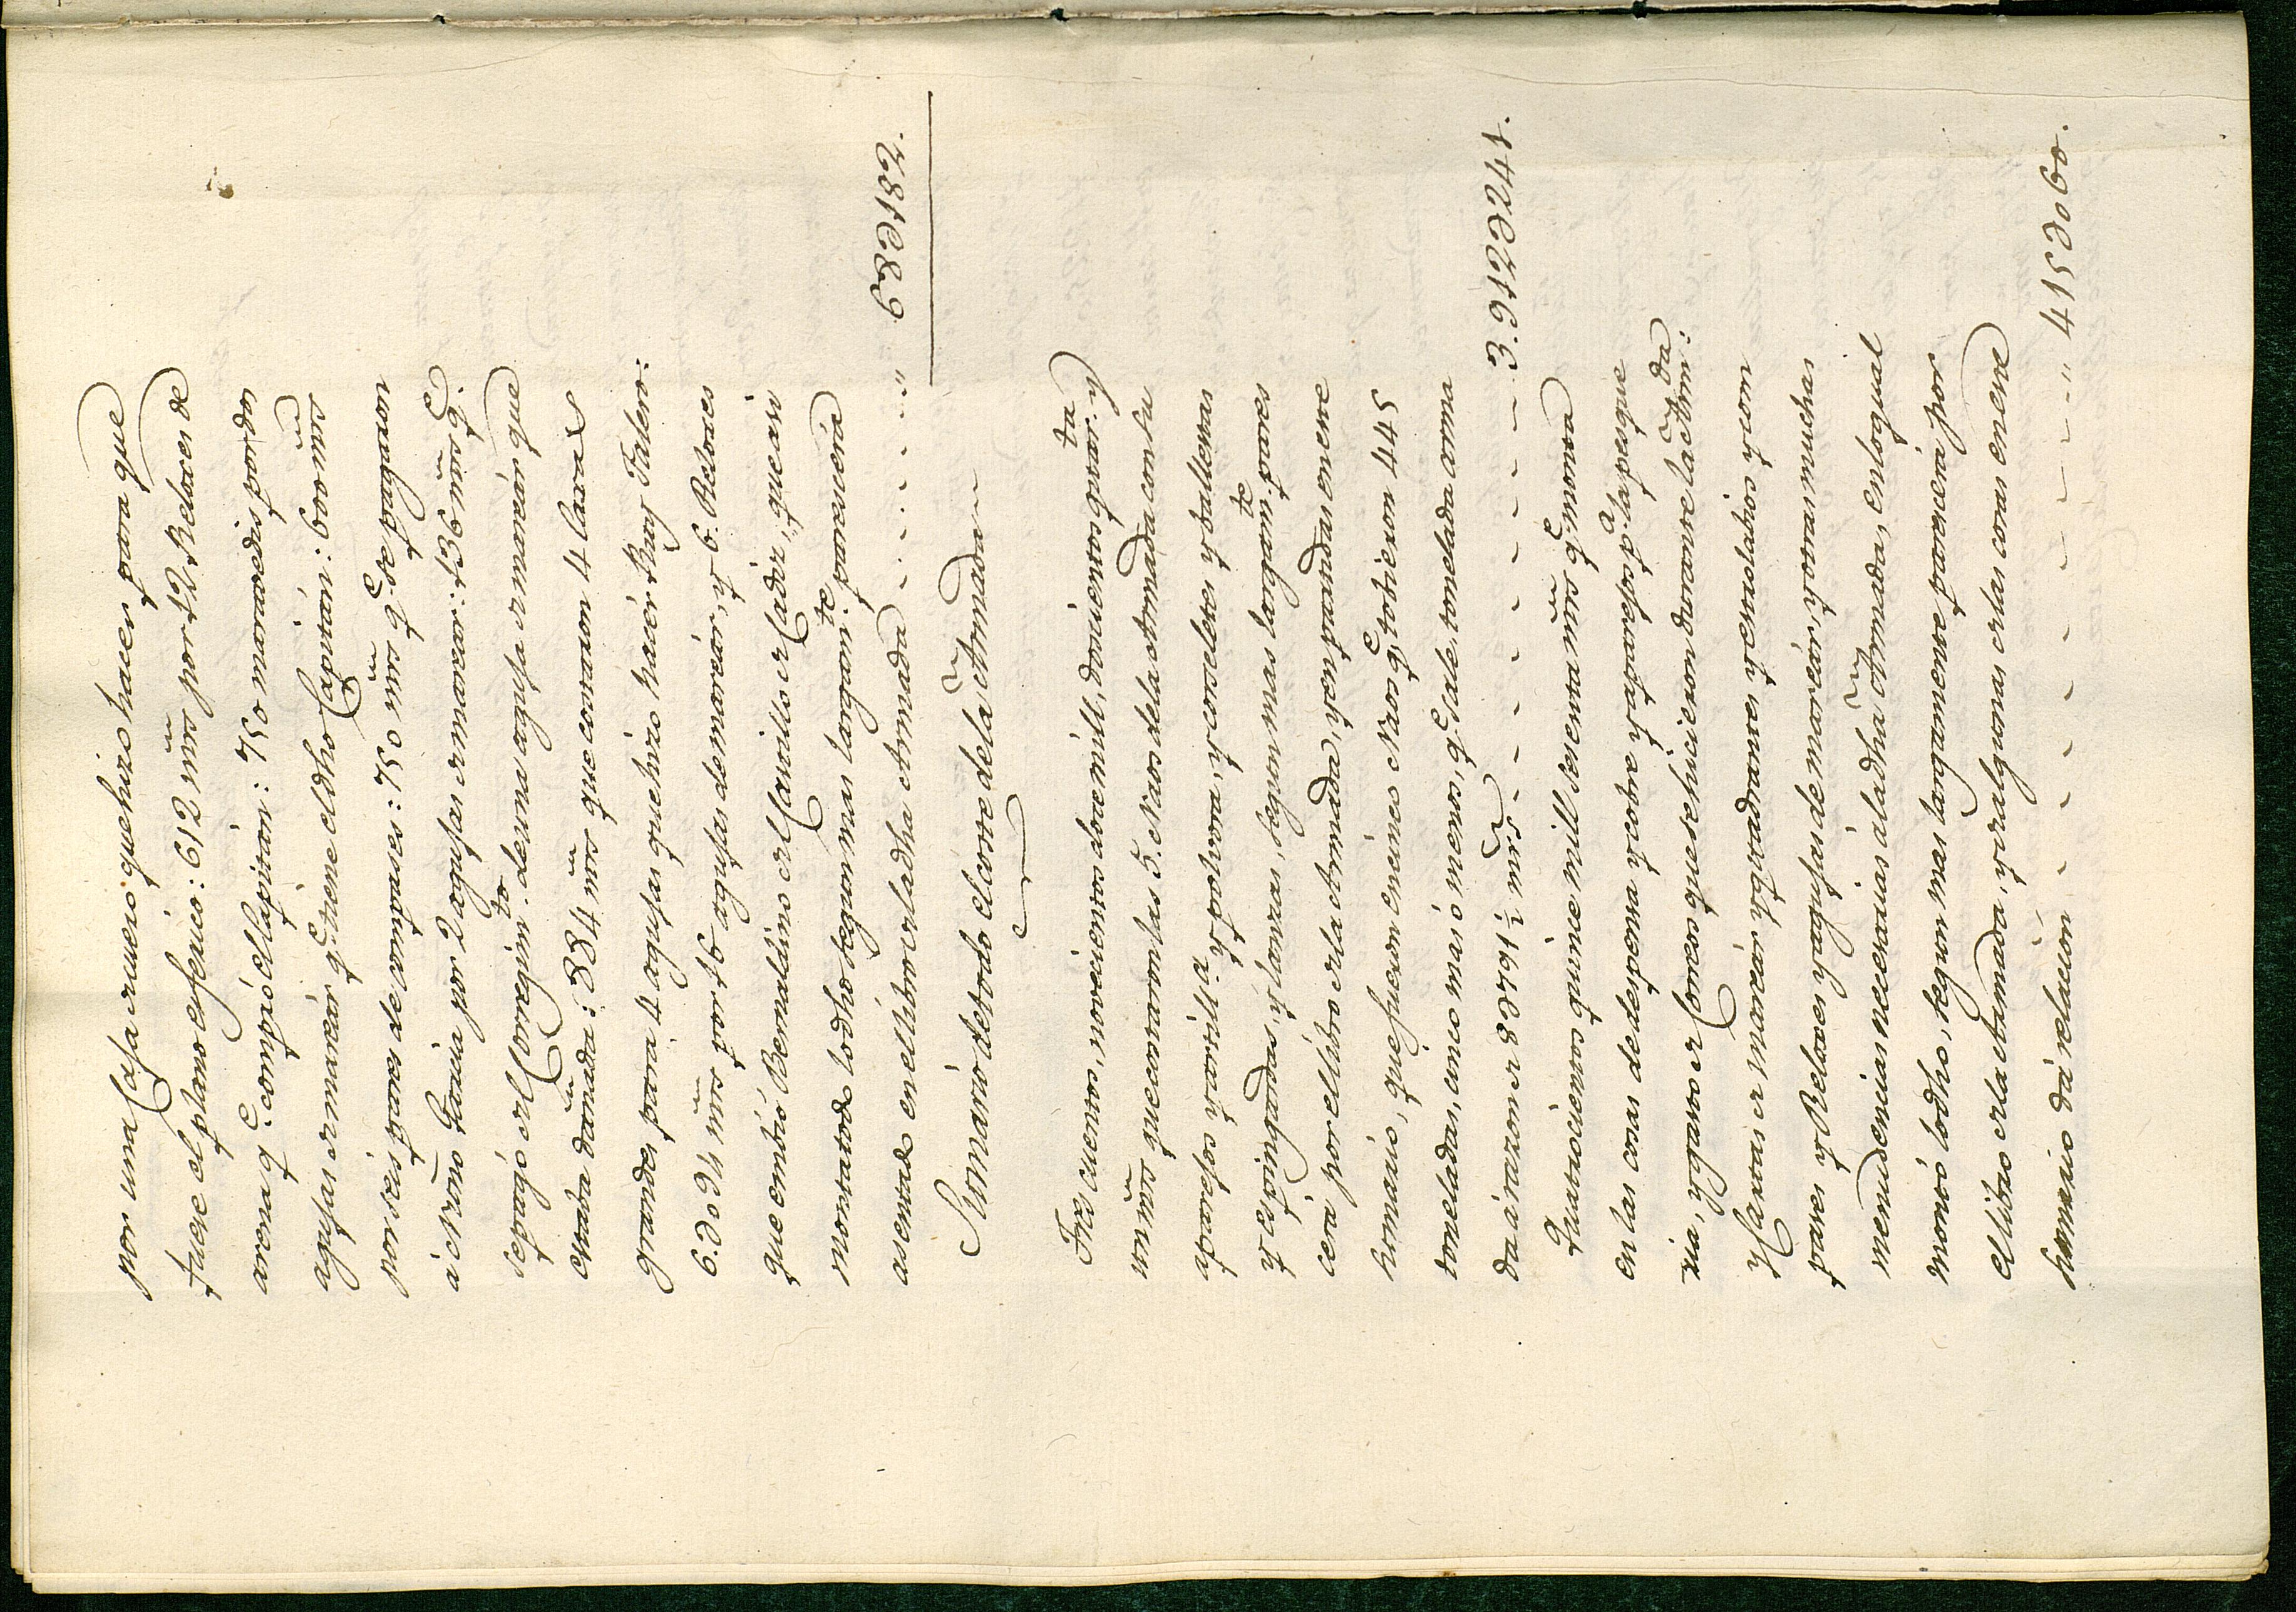 por una Caxa de cuero que hizo hacer para que
fuese el plano esferico: 612 mrs̃ por 12 Reloxes de
arena q.e compró el Capitán: 750 maravedis por dos
agujas de mareár q.e tiene el dho Capitán: 600 mrs̃
por seis pares de compases: 750 mrs̃ q.e se pagaron
á Nuño Garcia por 2 agujas de marear: 136 mrs̃ q.e
se pagó del Corregim.to de una aguja de mareár que
estaba dañada: 884 mrs̃ que costaron 4 laxas
grandes para 4 agujas que hizo hacér Ruy Falero:
6.∂094 mrs̃ por 16 agujas de mareár, y 6. Reloxes
que embió Bernaldino del Castillo de Cadiz, que asi
montatodo lo dho segun mas largam.te parescerá
asentado en el libro de la dha Armada - - - - - " 68∂182.
Sumario de todo el coste de la Armada
Tres cuentos, novecientos doce mill, docientos quar.ta y
un mrs̃ que costaron las 5. Naos de la Armada con su
aparejos y artill.a y polvora, y coseletes y ballestas
y espingardas, y lanzas, segun mas largam.te pares
cerá por el libro de la Armada, y en partidas en este
sumario, que fueron en cinco Naos q.e tobieron 445
toneladas, cinco mas ó menos, q.e sale, tonelada arma
da á razon de 8∂791 ½ mrs̃ - - - - - - - - 3.912∂241.
Quatrocientos quince mill sesenta mrs̃ q.e monta
en las cosas de despensa y cobre y aparejo p.a la pesque
ria, y gasto de Correos que se hicieron durante la Arm:da
y Cartas de mareár y quadrantes y estrolabios y com
pases y Reloxes y agujas de mareár, y otras muchas
menudencias necesarias á la dha Armada, en lo qual
montó lo dho, segun mas largamente parescerá por
el libro de la Armada, y de algunas de las cosas en este
sumario dá relacion - - - - - - - - - " 415∂060.